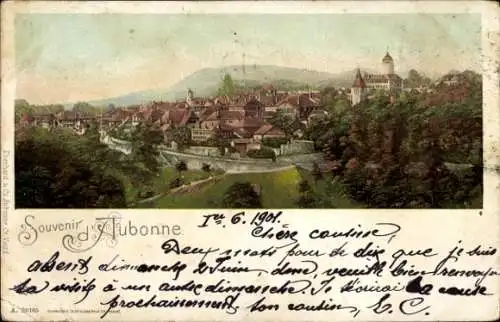 Souvenir d'Aubonne
Ier 6 1901.
Chère cousine
Deux mots pour dire que je suis
absent dimanche 2 Juin, donc, veuillez bien renvoyer
la visite à un autre dimanche. Je t'écrirai la cause
prochainement ton cousin, E. C.
A. 29165